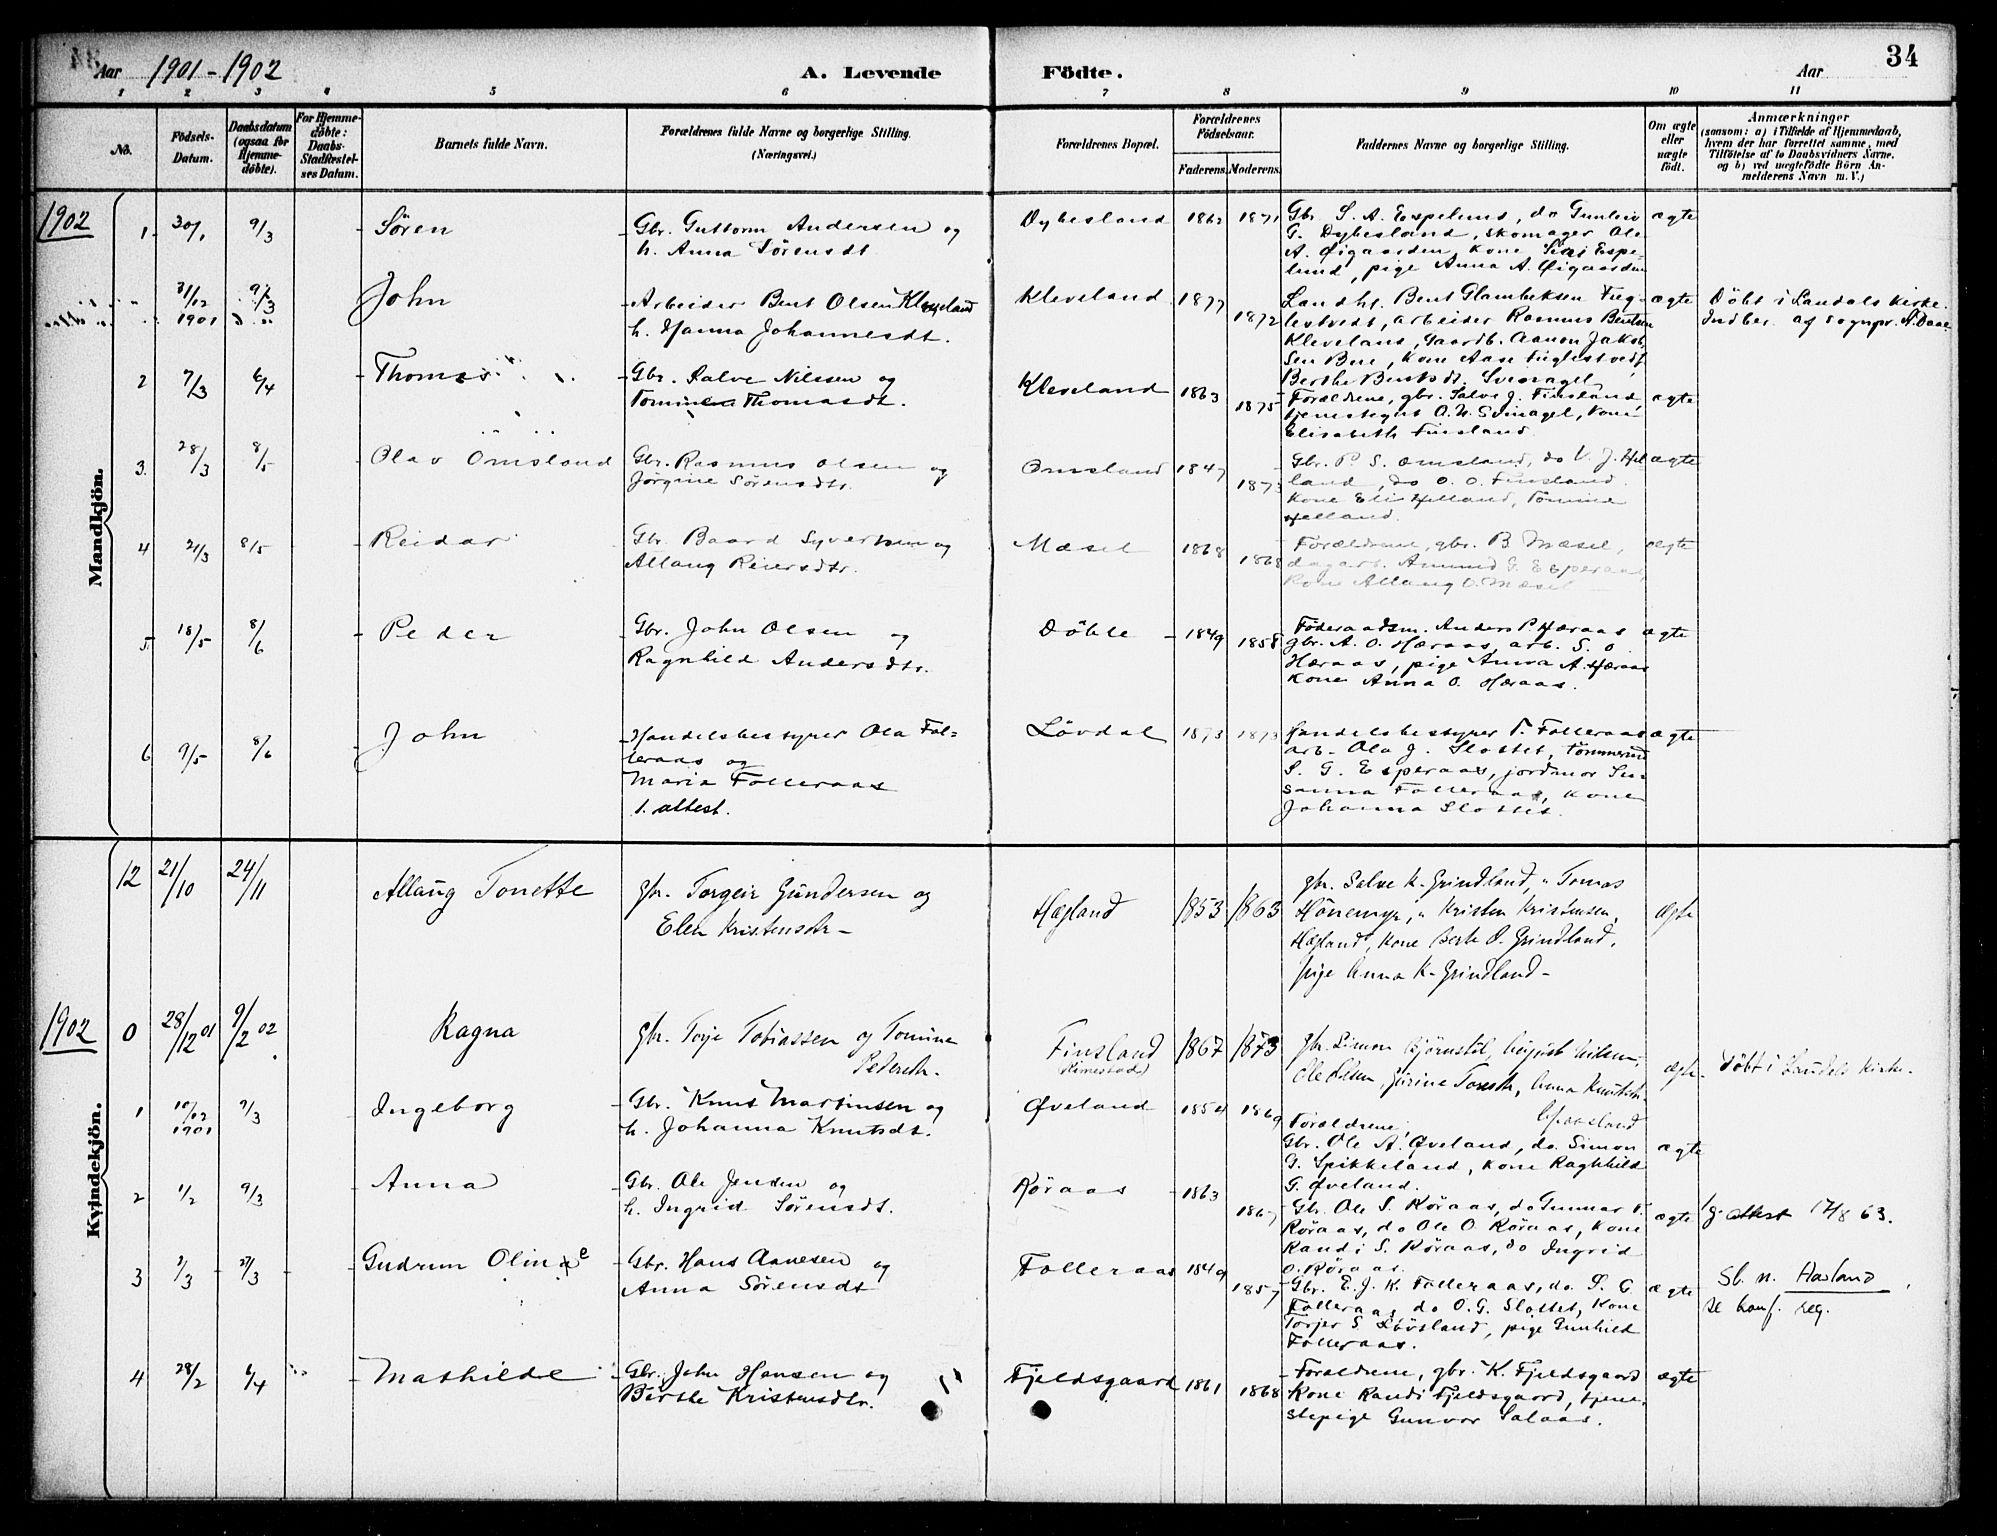 Aar 1901-1902
A. Levende Födte.
Aar
34
1 2 3 4 5 6 7 8 9 10 11
No.
Födsels-Datum.
Daabsdatum (ogsaa for Hjemmedöbte).
For Hjemmedöbte: Daabs-Stadfæstelses Datum.
Barnets fulde Navn.
Forældrenes fulde Navne og borgerlige Stilling. (Næringsvei.)
Forældrenes Bopæl.
Forældrenes Födselsaar.
Faderens. Moderens.
Faddernes Navne og borgerlige Stilling.
Om ægte eller uægte födt.
Anmærkninger
(saasom: a) i Tilfælde af Hjemmedaab, hvem der har forrettet samme, med Tilföielse af to Daabsvidners Navne, og b) ved uægtefödte Börn Anmelderens Navn m. V.)
Mandkjön.
1902
1. 30/1 9/3 Søren
Gbr. Guttorm Andersen og
h. Anna Sørensdt.
Dybesland 1862 1871
Gbr. S. A. Espelund, do Gunleiv
G. Dybesland, skomager Ole
A. Øigaarden, kone Siri Espe-
lund, pige Anna A. Øigaarden
ægte
31/12 1901 9/3 John
Arbeider Bent Olsen Kleveland
h. Hanna Johannesdt.
Kleveland 1877 1872
Landh. Bent Glambeksen Fug-
lestvedt, arbeider Rasmus Bentsen
Kleveland, Gaardb. Aanon Jakob
sen Bue, kone Aase Fuglestvedt,
Berthe Bentsdt. Svinagel
ægte
Döbt i Laudals Kirke.
Indber. af sognpr. A. Daae
2 7/3 6/4 Thomas
Gbr. Salve Nilssen og
Tomine Thomasdt.
Kleveland 1863 1875
Forældrene, gbr. Salve J. Finsland,
tjenestegut O. N. Svinagel, kone
Elisabeth Finsland
ægte
3. 28/3 8/5 Olav Omsland
Gbr. Rasmus Olsen og
Jørgine Sørensdtr.
Omsland 1847 1873
Gbr. P. S. Omsland, do V. J. Hel
land, do O. O. Finsland
kone Eli Helland, Tomine
Helland.
ægte
4 21/3 8/5 Reidar
Gbr. Baard Syvertsen og
Allaug Reiersdtr.
Mæsel 1868 1868
Forældrene, gbr. B. Mæsel,
dagarb. Amund G. Esperaas,
kone Allaug O. Mæsel
ægte
5. 18/5 8/6 Peder
Gbr. John Olsen og
Ragnhild Andersdtr.
Döble 1849 1858
Föderaadsm. Anders P. Hæraas
gbr. A. O. Hæraas, arb. S. O.
Hæraas, pige Anna A. Hæraas
kone Anna O. Hæraas.
ægte
6 9/5 8/6 John
Handelsbestyrer Ola Fol-
leraas og
Maria Folleraas
1. attest.
Lövdal 1873 1873
Handelsbestyrer T. Folleraas
arb. Ola J. Slottet, tömmermd
S. G. Esperaas, jordmor Su-
sanna Folleraas, kone
Johanna Slottet.
ægte
Kvindekjön.
12 21/10 24/11 Allaug Tonette
gbr. Torgeir Gundersen og
Elen Kristensdtr.
Hægland 1853 1863
gbr. Salve K. Grindland, " Tomas
Hönemyr, " Kristen Kristensen,
Hægland, kone Berte O. Grindland,
pige Anna K. Grindland
ægte
1902
0 28/12 01 9/2 02 Ragna
gbr. Terje Tobiassen og Tomine
Pedersdtr.
Finsland (Kimestad) 1867 1873
gbr. Simon Bjørnstöl, August Nilsen,
Ole Olsen, Gurine Toresdtr, Anna Knutsdtr.
ægte.
Döbt i Laudals Kirke.
1 10/12 1901 9/3 Ingeborg
Gbr. Knut Martinsen og
h. Johanna Knutsdt.
Øveland 1854 1869
Forældrene,
Gbr. Ole A. Øveland, do. Simon
G. Spikkeland, kone Ragnhild
G. Øveland.
ægte
2 1/2 9/3 Anna
Gbr. Ole Jensen og
h. Ingrid Sørensdt.
Røraas 1863 1867
Gbr. Ole S. Røraas, do Gunnar T.
Røraas, do Ole O. Røraas, kone
Randi S. Røraas, do Ingrid
O. Røraas.
ægte
attest 17/8 63.
3 2/3 27/3 Gudrun Oline
Gbr. Hans Aanesen og
Anna Sørensdt
Folleraas 1849 1857
Gbr. E. J. K. Folleraas, do. S. G
Folleraas, do O. G. Slottet, kone
Torjer S. Lövsland, pige Gunhild
Folleraas.
ægte
Sl. n. Aasland
se konf. reg.
4 28/2 6/4 Mathilde
Gbr. John Hansen og
Birthe Kristensdtr.
Fjeldsgaard 1861 1868
Forældrene, gbr. K. Fjeldsgaard
kone Randi Fjeldsgaard, tjene-
stepige Gunvor Salaas.
ægte